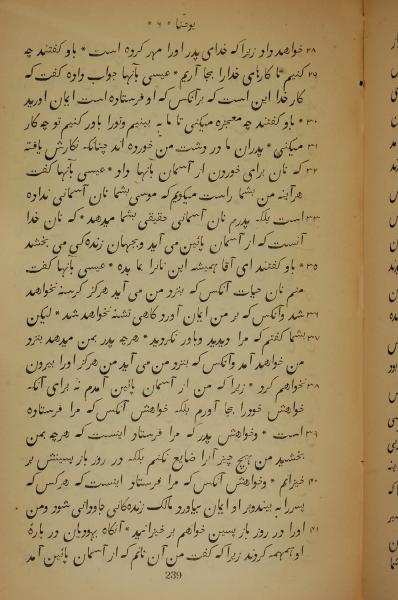 یوحنا * ۶ *
۲۸ خواهد داد زیرا که خدای پدر اورا مهر کرده است * باو گفتند چه
۲۹ کنیم تا کارهای خدارا بجا آریم * عیسی بآنها جواب داده گفت که
کار خدا این است که برآنکس که او فرستاده است ایمان آورید
۳۰ * باو گفتند چه معجزه میکنی تا ما به بینیم وتورا باور کنیم تو چه کار
۳۱ میکنی * پدران ما در دشت من خورده اند چنانکه نگارش یافته
۳۲ که نان برای خوردن از آسمان بآنها داد * عیسی بآنها گفت
هرآینه من بشما راست میگویم که موسی بشما نان آسمانی نداده
۳۳ است بلکه پدرم نان آسمانی حقیقی بشما میدهد * که نان خدا
آنست که از آسمان پائین می آید وبجهان زنده کی می بخشد
۳۵ * باو گفتند ای آقا همیشه این نانرا بما بده * عیسی بآنها گفت
منم نان حیات آنکس که بنزد من می آید هرگز گرسنه نخواهد
۳۶ شد وآنکس که بر من ایمان آورد گاهی تشنه نخواهد شد * لیکن
۳۷ بشما گفتم که مرا دیدید وباور نکردید * هرچه پدر بمن میدهد بنزد
من خواهد آمد وآنکس که بنزد من می آید من هرگز اورا بیرون
۳۸ نخواهم کرد * زیرا که من از آسمان پائین آمدم نه برای آنکه
خواهش خودرا بجا آورم بلکه خواهش آنکس که مرا فرستاده
۳۹ است * وخواهش پدر که مرا فرستاد اینست که هرچه بمن
بخشید من هیچ چیز آنرا ضایع نکنم بلکه در روز باز پسینش بر
۴۰ خیزانم * وخواهش آنکس که مرا فرستاد اینست که هرکس که
پسررا به بیند وبر او ایمان بیاورد مالک زنده کانی جاودانی شود ومن
۴۱ اورا در روز باز پسین خواهم بر خیزانید * آنگاه یهودیان در باره
او همهمه کردند زیرا که گفت من آن نانم که از آسمان پائین آمد
239